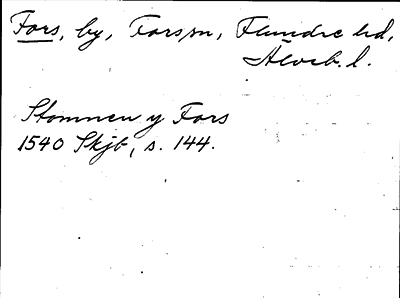 Fors, by, Fors sn, Flundre hd,
Älvsb. l.
Stommen y Fors
1540 Skjb, s. 144.